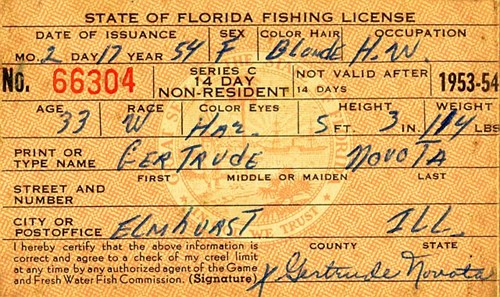 STATE OF FLORIDA FISHING LICENSE
DATE OF ISSUANCE SEX COLOR HAIR OCCUPATION
MO. 2 DAY 17 YEAR 54 F Blonde H.W.
No. 66304 SERIES C 14 DAY NON-RESIDENT NOT VALID AFTER 14 DAYS 1953-54
AGE RACE COLOR EYES HEIGHT WEIGHT
33 W Haz. 5 FT. 3 IN. 114 LBS
PRINT OR TYPE NAME GERTRUDE NOVOTA
FIRST MIDDLE OR MAIDEN LAST
STREET AND NUMBER
CITY OR POSTOFFICE ELMHURST ILL.
COUNTY STATE
I hereby certify that the above information is
correct and agree to a check of my creel limit
at any time by any authorized agent of the Game
and Fresh Water Fish Commission. (Signature) x Gertrude Novota